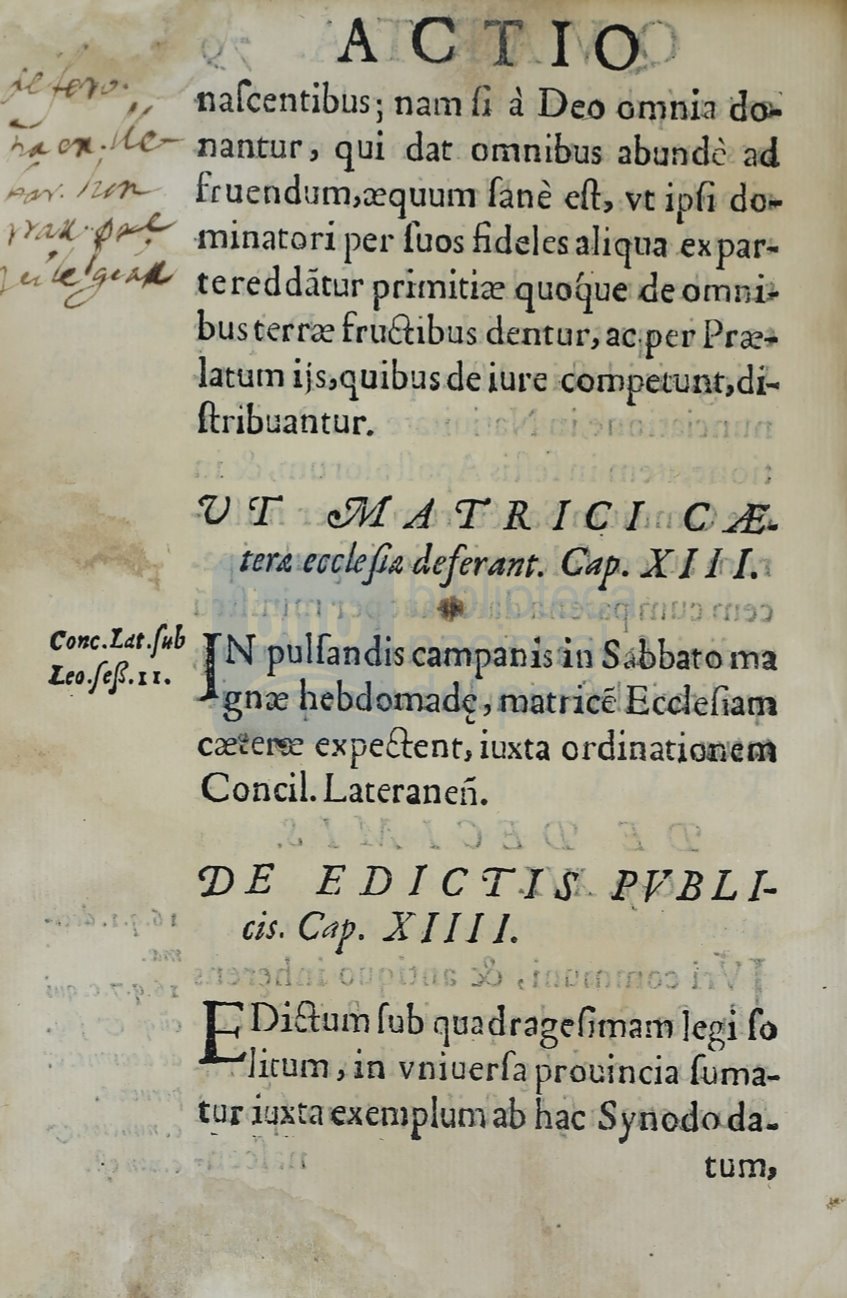 ACTIO
naſcentibus; nam ſi à Deo omnia do-
nantur, qui dat omnibus abundè ad
fruendum, æquum ſanè eſt, vt ipſi do-
minatori per ſuos fideles aliqua ex par-
te reddãtur primitiæ quoq́ue de omni-
bus terræ fructibus dentur, ac per Præ-
latum ijs, quibus de iure competunt, di-
ſtribuantur.
UT MATRICI CÆ-
teræ eccleſiæ deferant. Cap. XIII.
Conc. Lat. ſub
Leo. ſeß. 11.
IN pulſandis campanis in Sabbato ma
gnæ hebdomadę, matricẽ Eccleſiam
cæteræ expectent, iuxta ordinationem
Concil. Lateraneñ.
DE EDICTIS PVBLI-
cis. Cap. XIIII.
EDictum ſub quadrageſimam legi ſo
litum, in vniuerſa prouincia ſuma-
tur iuxta exemplum ab hac Synodo da-
tum,